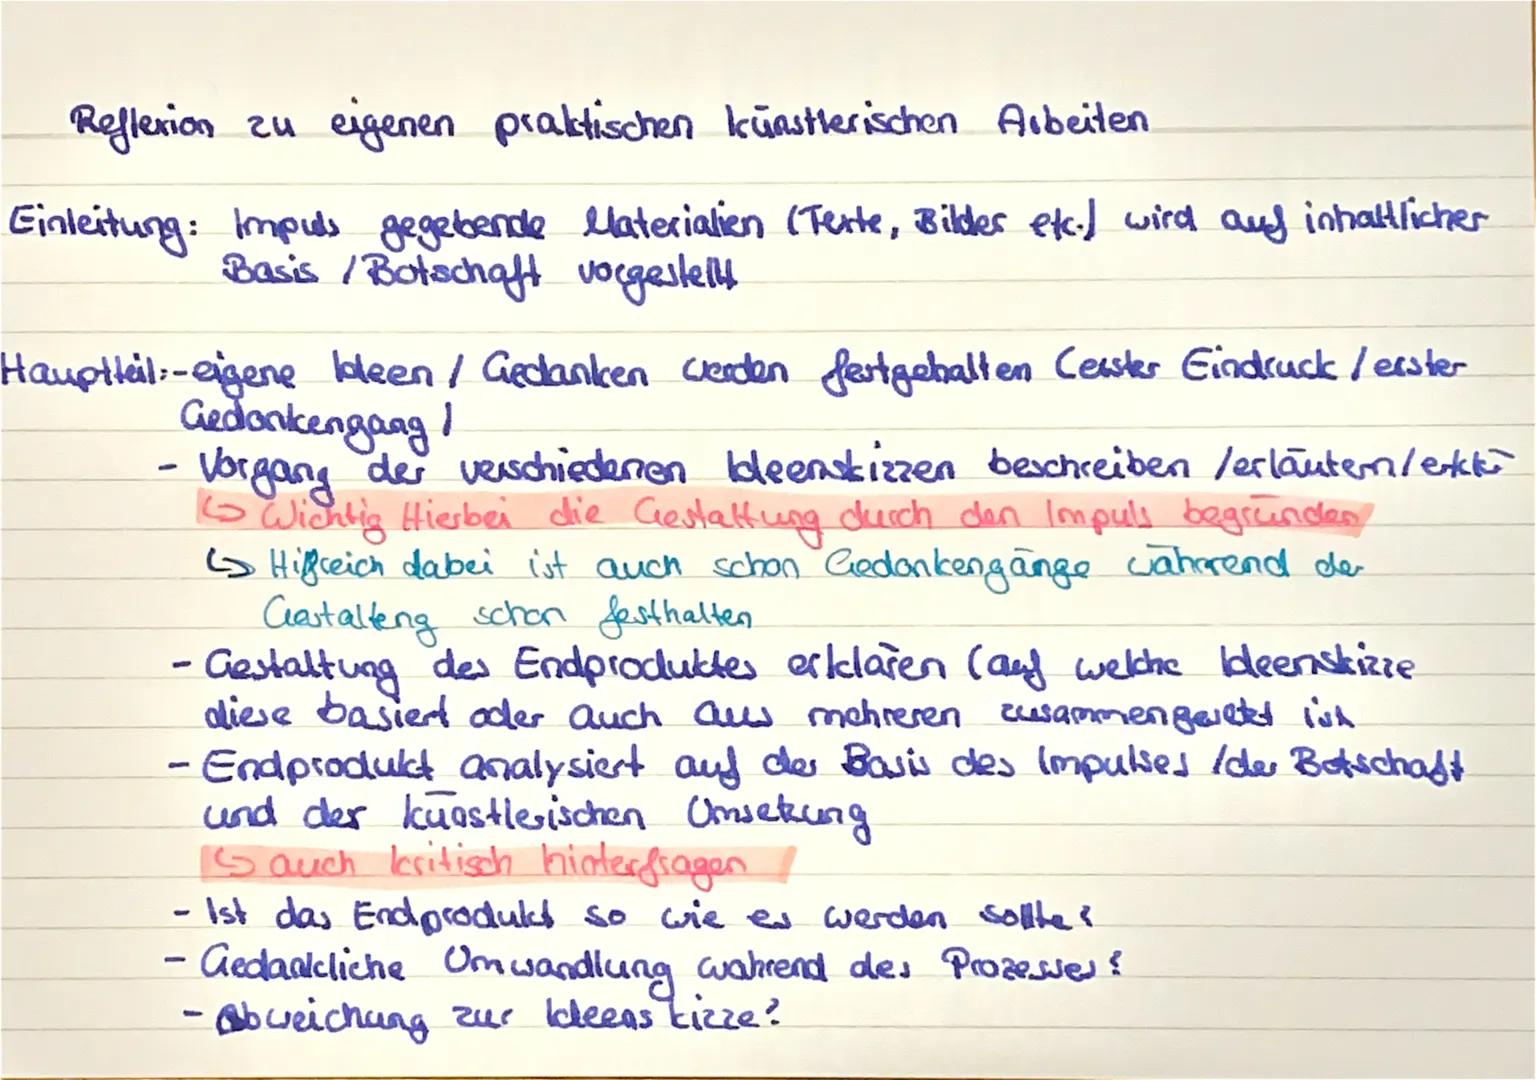 Reflexion zu eigenen praktischen künstlerischen Arbeiten
Einleitung: Impuls gegebende Materialien (Texte, Bilder etc.) wird auf inhaltlicher
Basis / Botschaft vorgestellt
Hauptteil: - eigene Ideen / Gedanken werden festgehalten (erster Eindruck / erster
Gedankengang)
- Vorgang der verschiedenen Ideenskizzen beschreiben /erläutern/
↳ Wichtig Hierbei die Gestaltung durch den Impuls begründen
↳ Hilfreich dabei ist auch schon Gedankengänge während der
Gestalteng schon festhalten
- Gestaltung des Endproduktes erklären (auf welche Ideenskizze
diese basiert oder auch aus mehreren zusammengesetzt ist
- Endprodukt analysiert auf der Basis des Impulses /der Botschaft
und der künstlerischen Umsetzung
↳ auch kritisch hinterfragen
- Ist das Endprodukt so wie es werden sollte?
- Gedankliche Umwandlung während des Prozesses?
- Abweichung zur Ideenskizze?